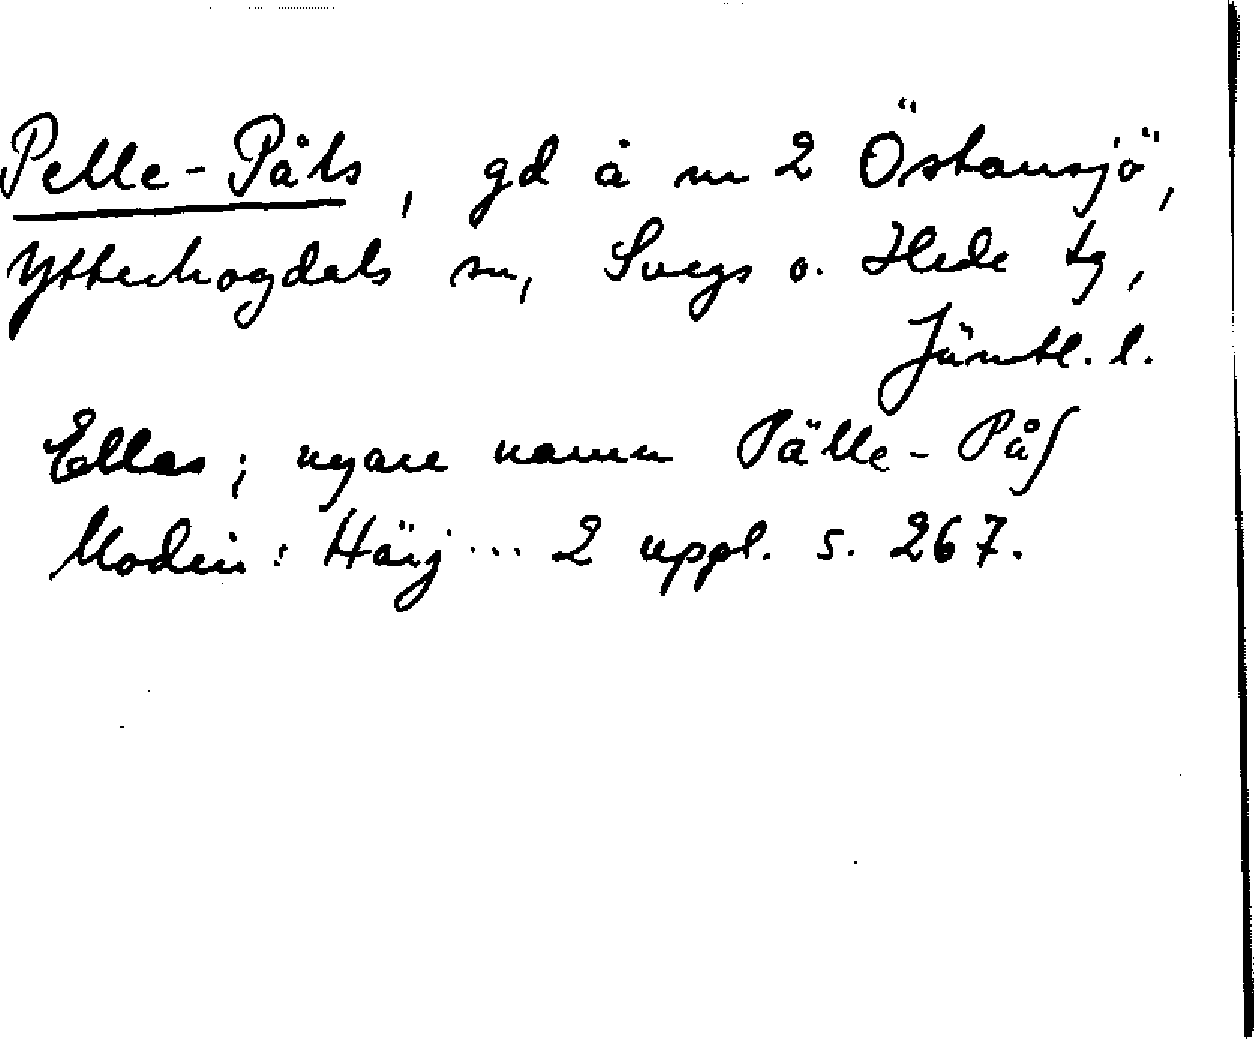 Pelle-Påls, gd å nr 2 Östansjö,
Ytterhogdals sn, Svegs o. Hede tg,
Jämtl. l.
Ellas; nyare namn Pälle-Påʃ
Modin: Härj... 2 uppl. s. 267.